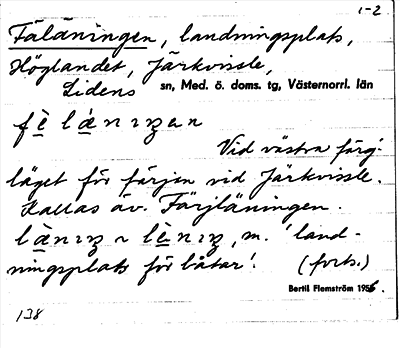 1-2.
Faläningen, landningsplats,
Höglandet, Järkvissle,
Lidens sn, Med. ö. doms. tg, Västernorrl. län
Vid västra färj-
läget för färjan vid Järkvissle.
Kallas äv. Färjläningen.
m. 'land-
ningsplats för båtar'. (forts.)
Bertil Flemström 1956.
138